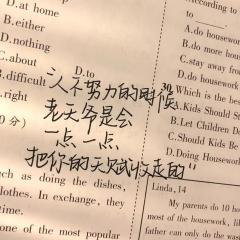 D.at home
B.either
D.nothing
C.about
D.to
B.difficult
.right
0分)
"人不努力的时候
老天爷是会
一点一点
把你的天赋收走的"
ch as doing the dishes,
lothes. In exchange, they
time.
one of the most popular
According to
A.do housework
B.do more hou
C.stay away fro
D.do housework
Which is the bes
A.Kids Should S
B.Let Children D
C.Should Kids Be
D.Doing Housewor
Linda,14
My parents do 10 ho
most of the housework, lik
father can only do the was